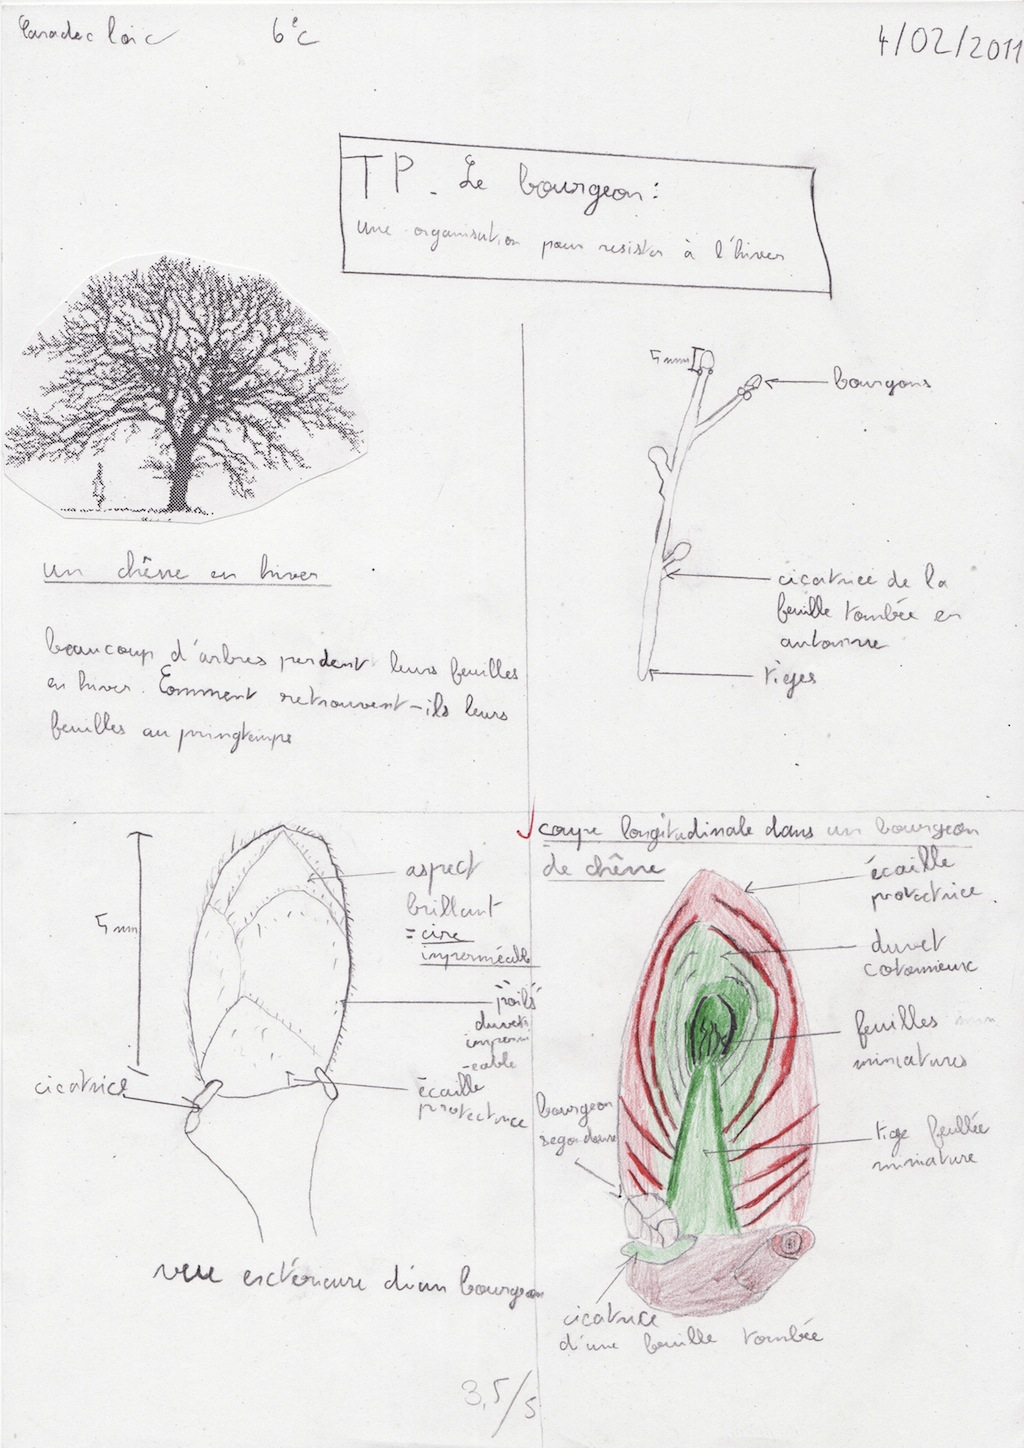 Caradec loïc 6°c 4/02/2011
TP. Le bourgeon:
une organisation pour resister à l'hiver
un chêne en hiver
beaucoup d'arbres perdent leurs feuilles
en hiver. Comment retrouvent-ils leurs
feuilles au pringtemps
5 mm
bourgons
cicatrice de la
feuille tombée en
automne
tiges
5 mm
aspect
brillant
= cire
imperméable
"poils"
duvets
imperm
-éable
écaille
protectrice
cicatrice
vue extérieure d'un bourgeon
coupe longitudinale dans un bourgeon
de chêne
écaille
protectrice
duvet
cotonnieux
feuilles
miniatures
tige feuillée
miniature
bourgeon
segondaire
cicatrice
d'une feuille tombée
3,5/5